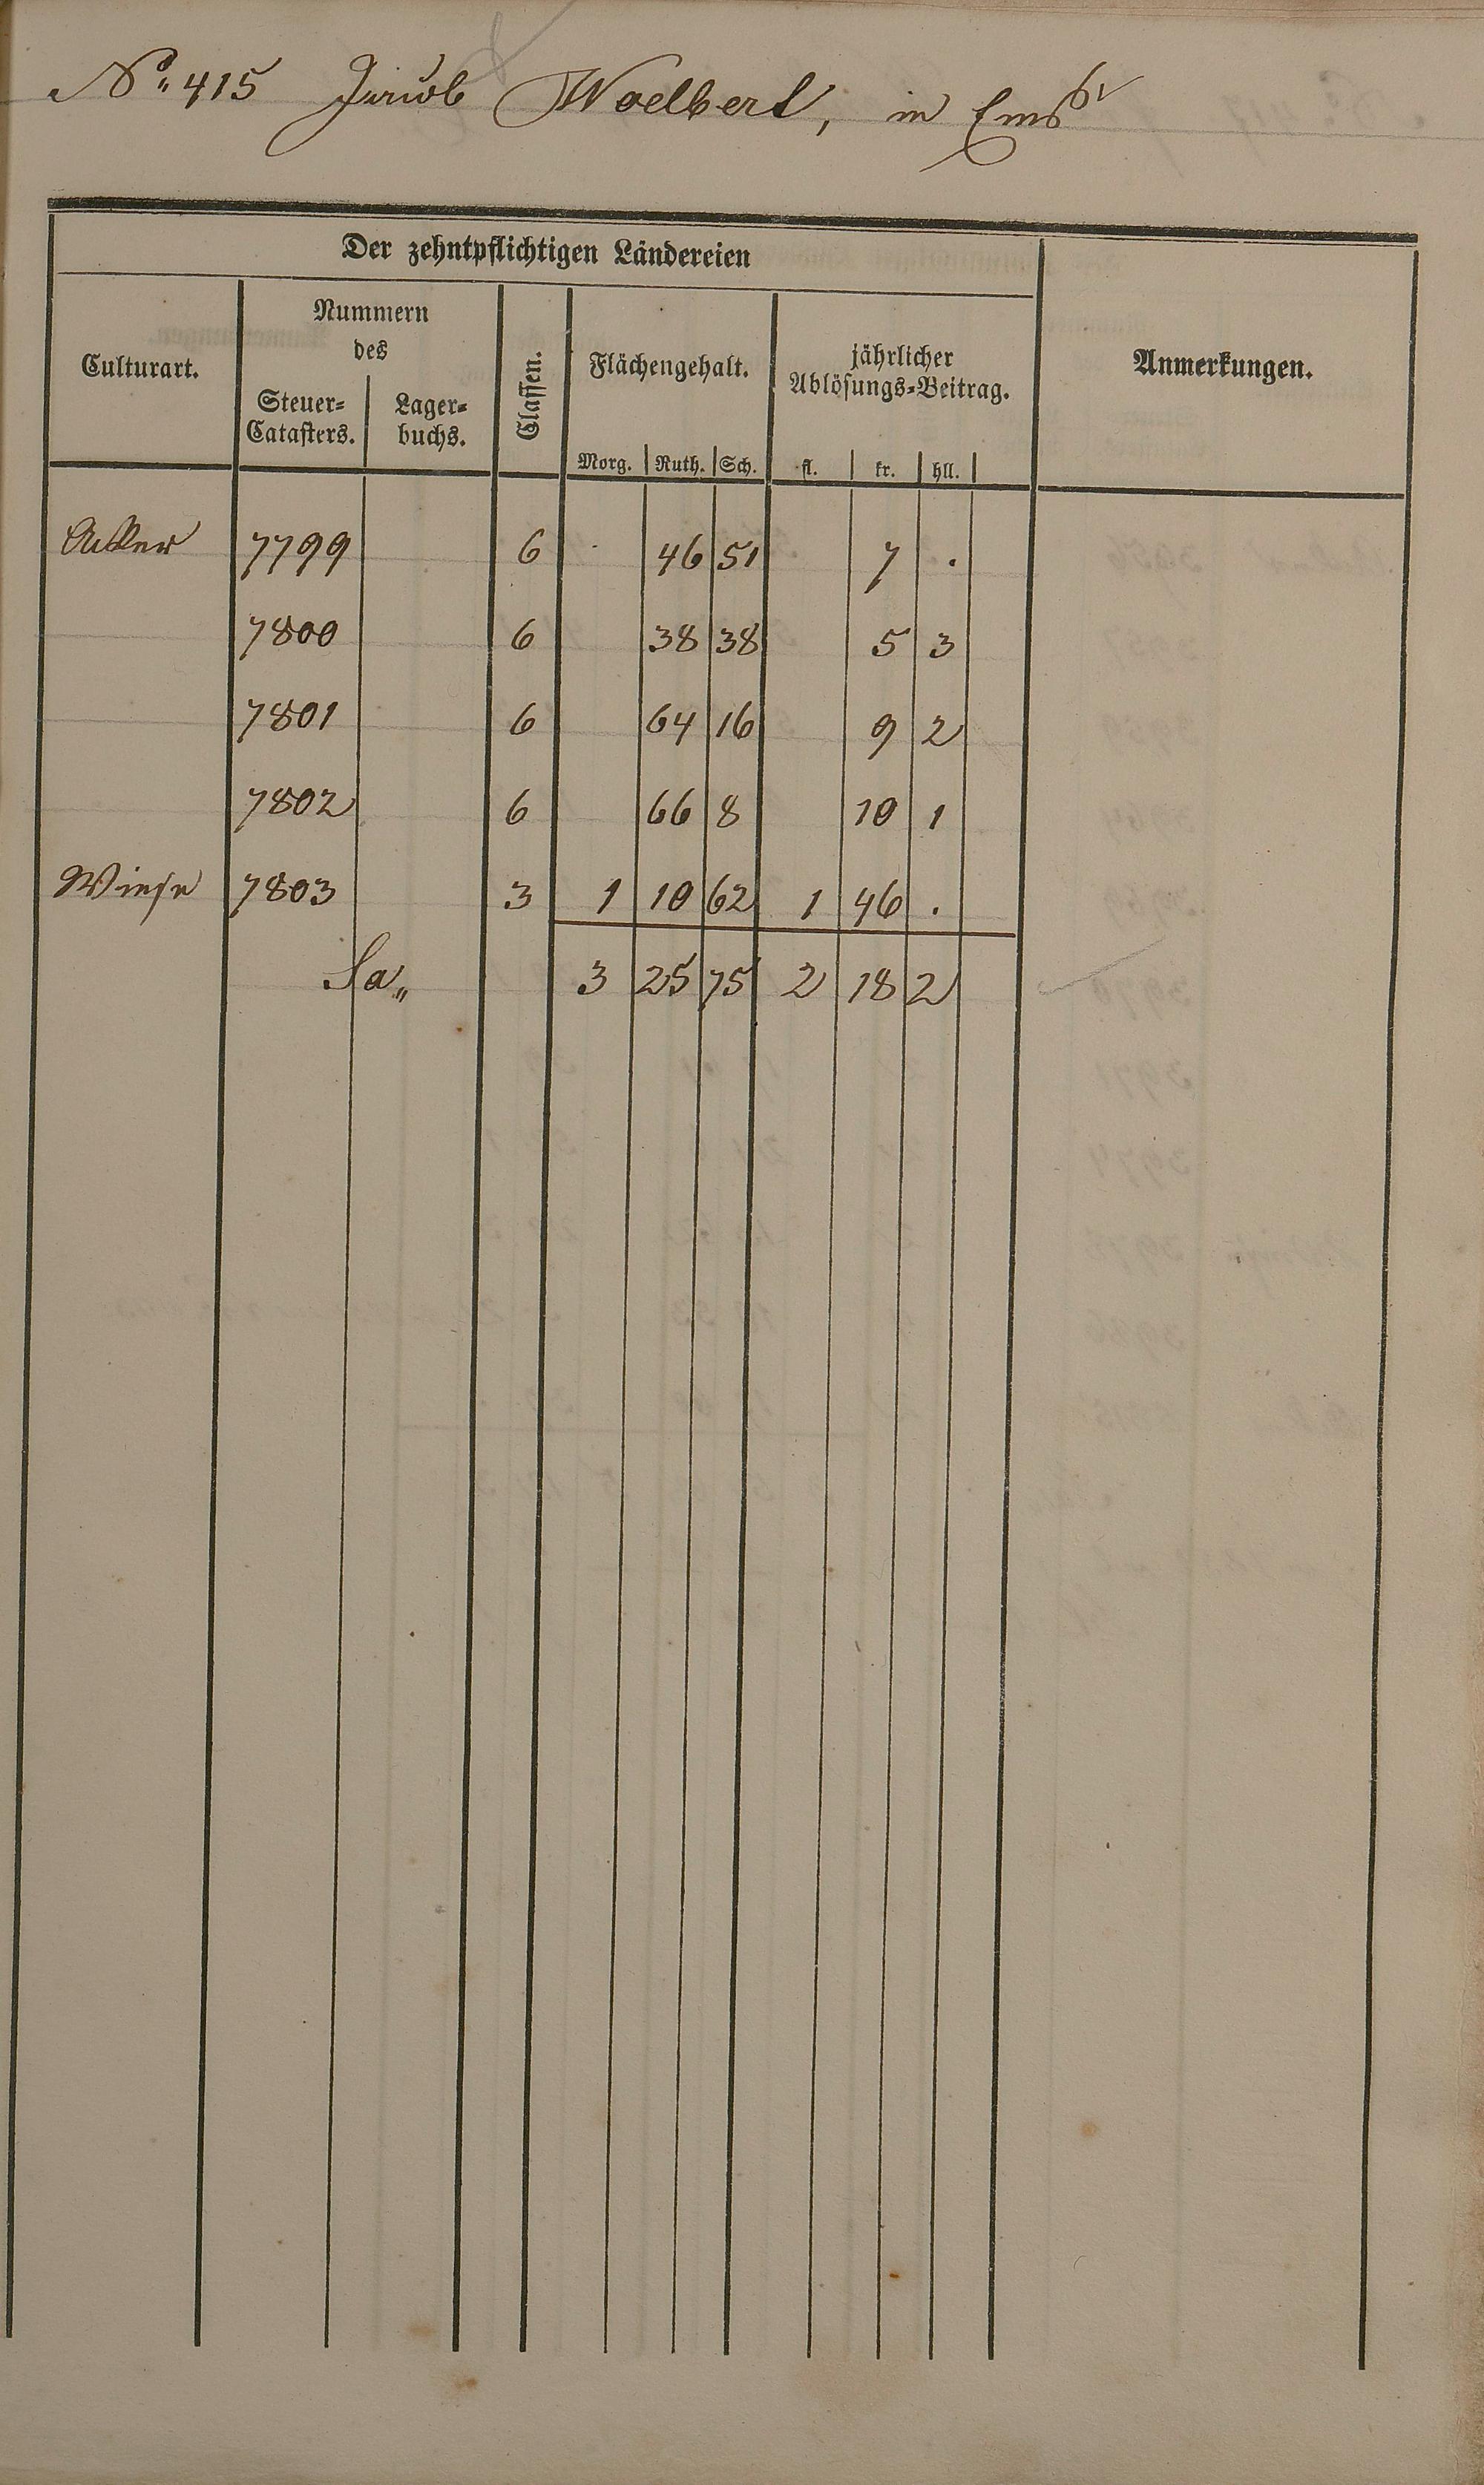 No. 415 Jacob Woelbert, in Ems
Der zehntpflichtigen Ländereien
Culturart.
Nummern
des
Steuer-
Catasters.
Lager-
buchs.
Classen.
Flächengehalt.
Morg. Ruth. Sch.
jährlicher
Ablösungs-Beitrag.
fl. kr. hll.
Anmerkungen.
Acker 7799 6 . 46 51 7 .
7800 6 38 38 5 3
7801 6 64 16 9 2
7802 6 66 8 10 1
Wiese 7803 3 1 10 62 1 46 .
Sa„ 3 25 75 2 18 2